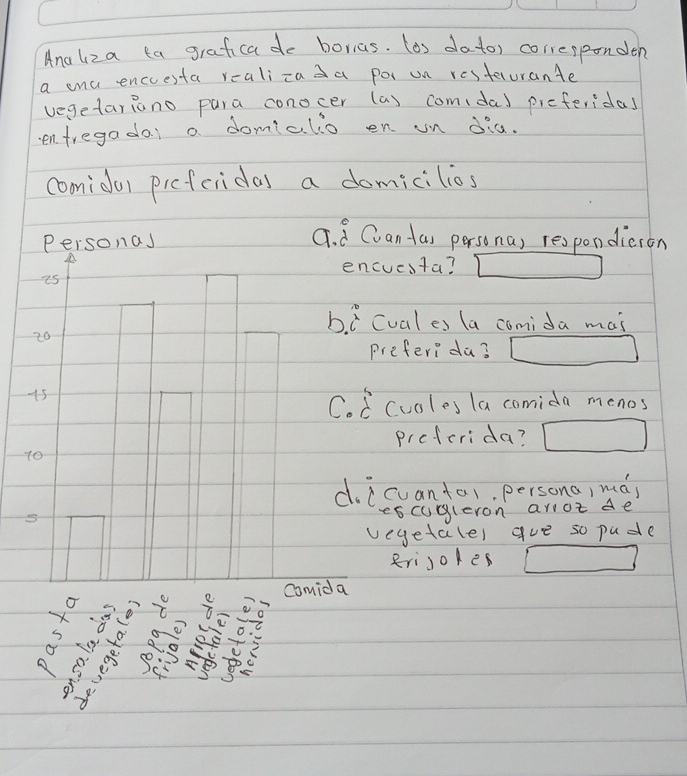 Analiza la grafica de barras. los datos corresponden
a una encuesta realizada por un restaurante
vegetariano para conocer las comidas preferidas
entregadas a domicilio en un dia.
comidas preferidas a domicilios
Personas
25
20
15
10
5
Pasta
ensaladas
de vegetales
sopa de
frijoles
Arroz de
vegetales
vegetales
hervidos
Comida
a.¿ Cuantas personas respondieron
encuesta?
b.¿ Cual es la comida más
preferida?
C.¿ cual es la comida menos
preferida?
d.¿ cuantas personas más
escogieron arroz de
vegetales que sopa de
frijoles